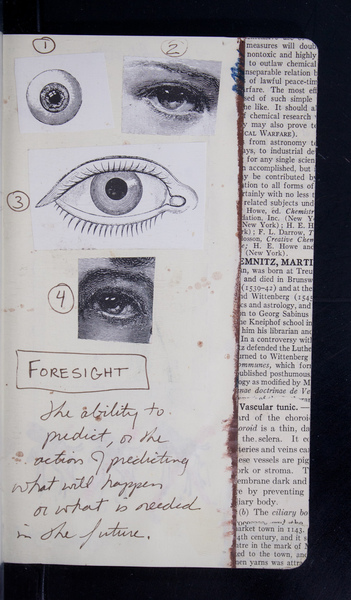 1
2
3
4
FORESIGHT
The ability to
predict, or the
action of predicting
what will happen
or what is needed
in the future.
measures will doub
nontoxic and highly
to outlaw chemical
nseparable relation b
of lawful peace-tim
rfare. The most eff
sed of such simple
he like. It should a
chemical research
y may also prove t
CAL WARFARE).
from astronomy t
ys, to industrial de
for any single scien
n accomplished, but
y be contributed b
ation to all forms of
rtainly with no less t
related subjects und
Howe, ed. Chemistr
dation, Inc. (New Y
rk); H. E. H
rk); F. L. Darrow, T
losson, Creative Chem
; H. E. Howe and
(New York).
EMNITZ, MARTI
n, was born at Treu
and died in Brunsw
(1539-42) and at the
nd Wittenberg (1545
cs and astrology, and
on to Georg Sabinus
he Kneiphof school in
him his librarian and
In a controversy with
ta defended the Luthe
urned to Wittenberg
ommunes, which for
ublished posthumous
ogy as modified by M
nae doctrinae de Ve
Vascular tunic. —
ard of the choroi
oroid is a thin, da
the sclera. It co
teries and veins ca
ese vessels are pig
ork or stroma. T
embrane dark and
e by preventing
iliary body.
(b) The ciliary bo
market town in 1143.
4th century, and it s
tre in the mark of M
ed to the town, and
en yarns was attra